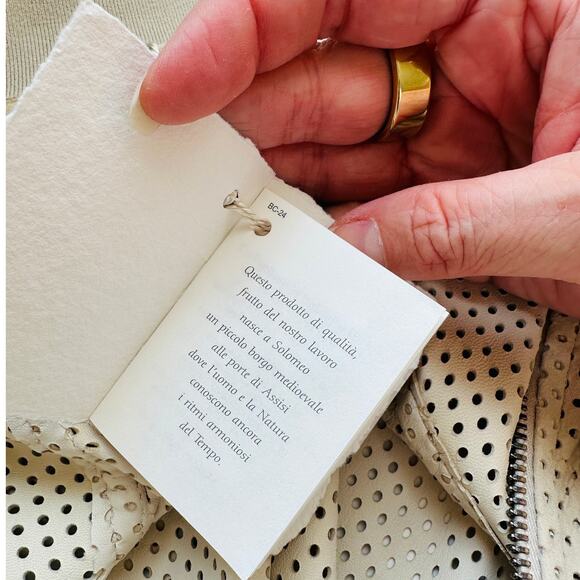 BC-24
Questo prodotto di qualità,
frutto del nostro lavoro
nasce a Solomeo
un piccolo borgo medioevale
alle porte di Assisi
dove l'uomo e la Natura
conoscono ancora
i ritmi armoniosi
del Tempo.